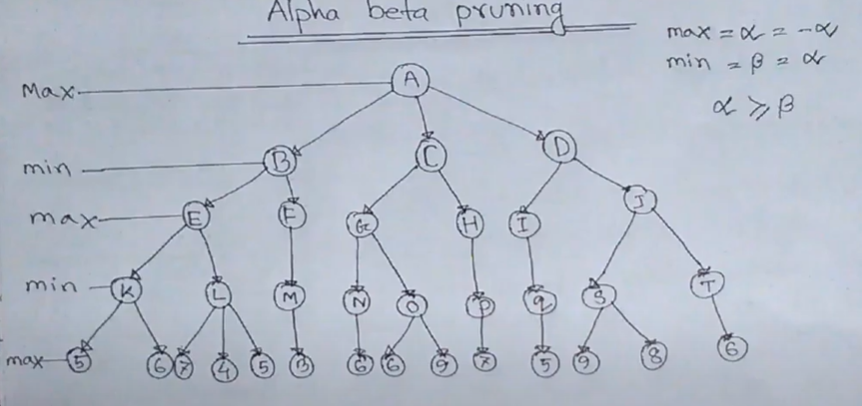 Alpha beta pruning
max = α = -α
min = β = α
α ≥ β
Max A
min B C D
max E F G H I J
min K L M N O P q S T
max 5 6 7 4 5 3 6 6 9 7 5 9 8 6